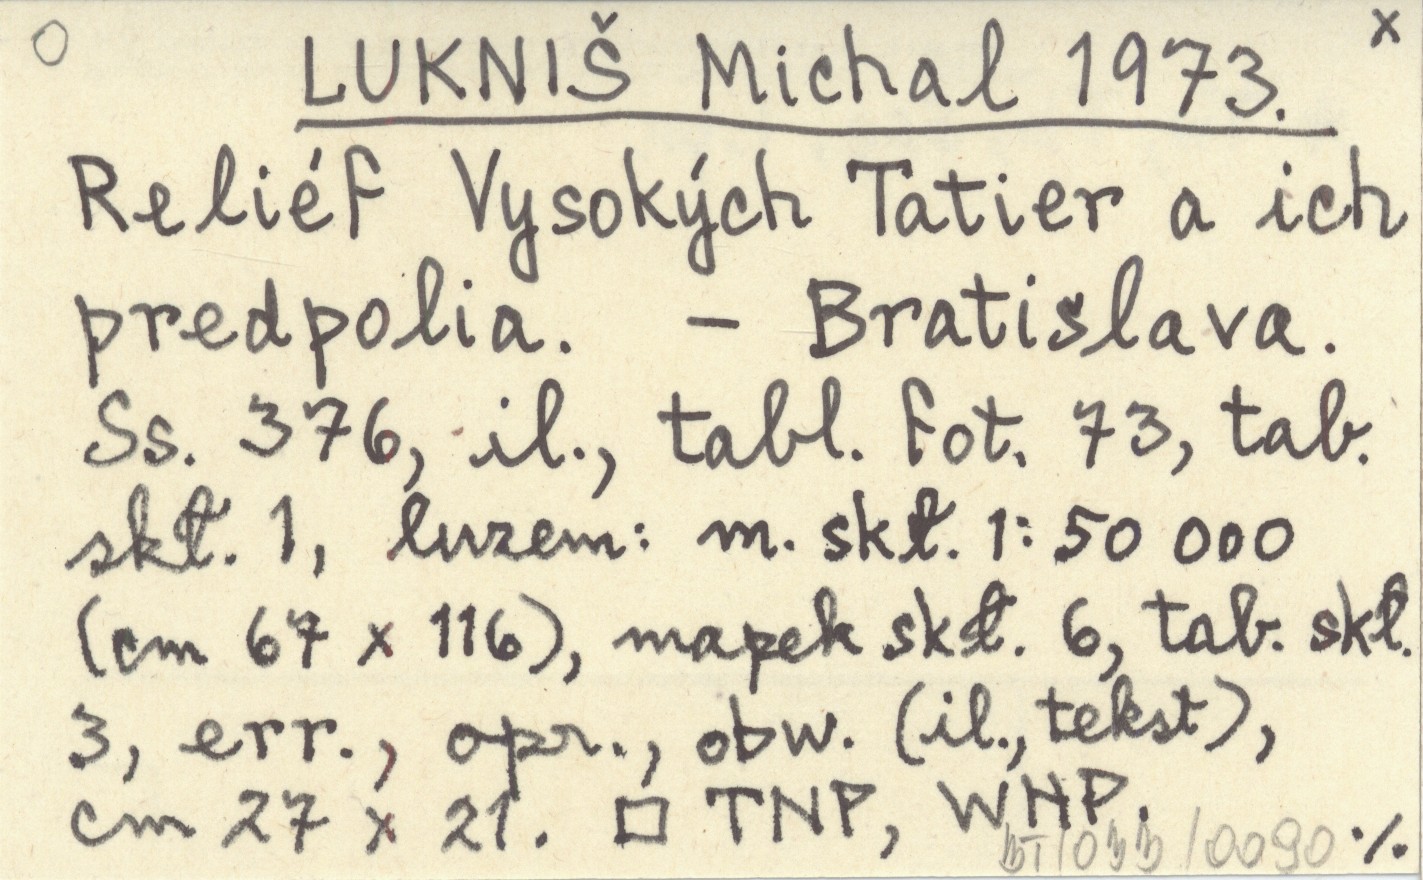 LUKNIŠ Michal 1973. x
Reliéf Vysokých Tatier a ich
predpolia. – Bratislava.
Ss. 376, il., tabl. fot. 73, tab.
skł. 1, luzem: m. skł. 1:50 000
(cm 67 x 116), mapek skł. 6, tab. skł.
3, err., opr., obw. (il., tekst),
cm 27 x 21. □ TNP, WHP. ·/.
/0090